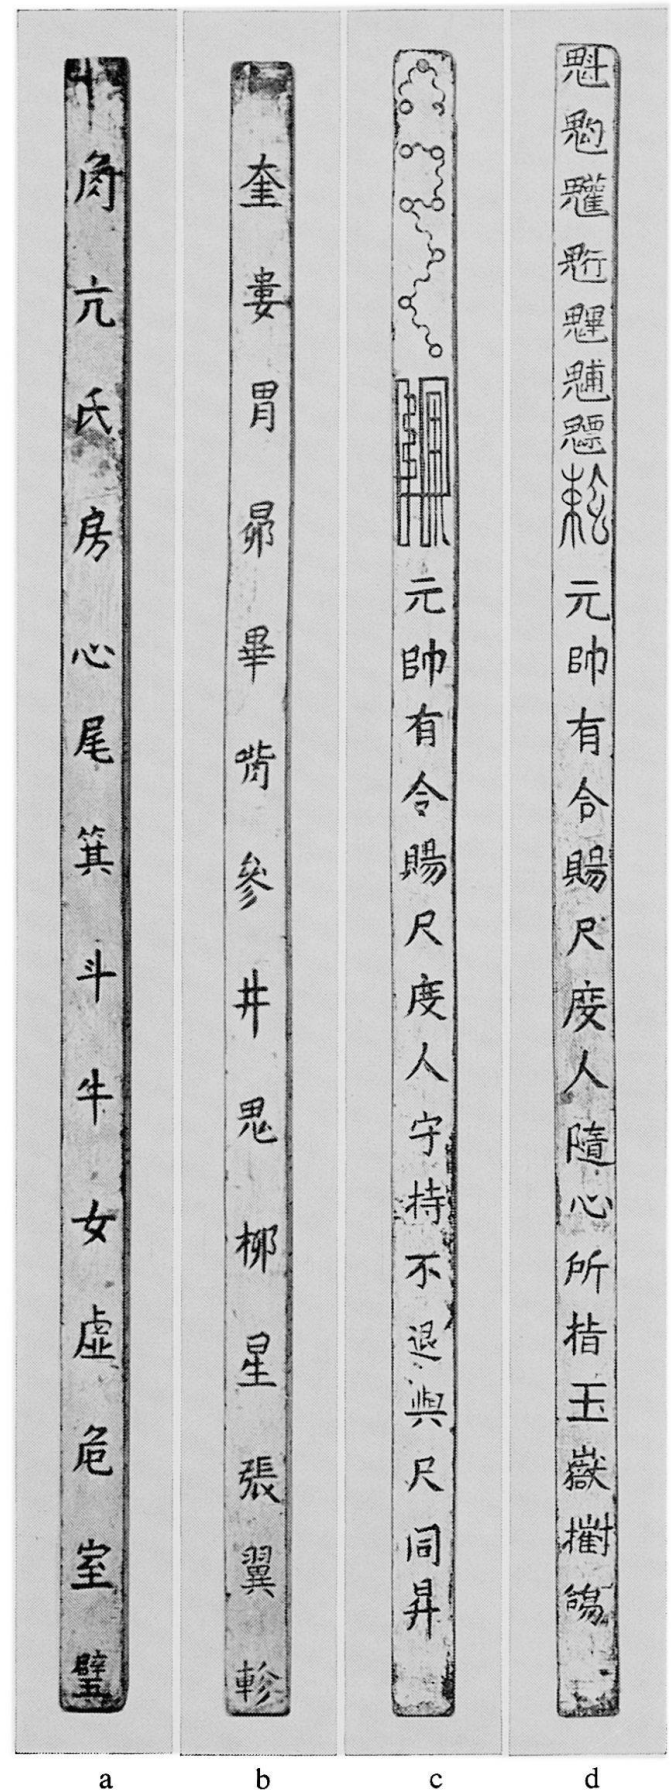 角亢氏房心尾箕斗牛女虛危室璧
奎婁胃昴畢嘴參井鬼柳星張翼軫
元帥有令賜尺度人守持不退與尺同昇
魁𩲃𩵄䰢魓䰡魒元帥有合賜尺度人隨心所指玉嶽
a b c d